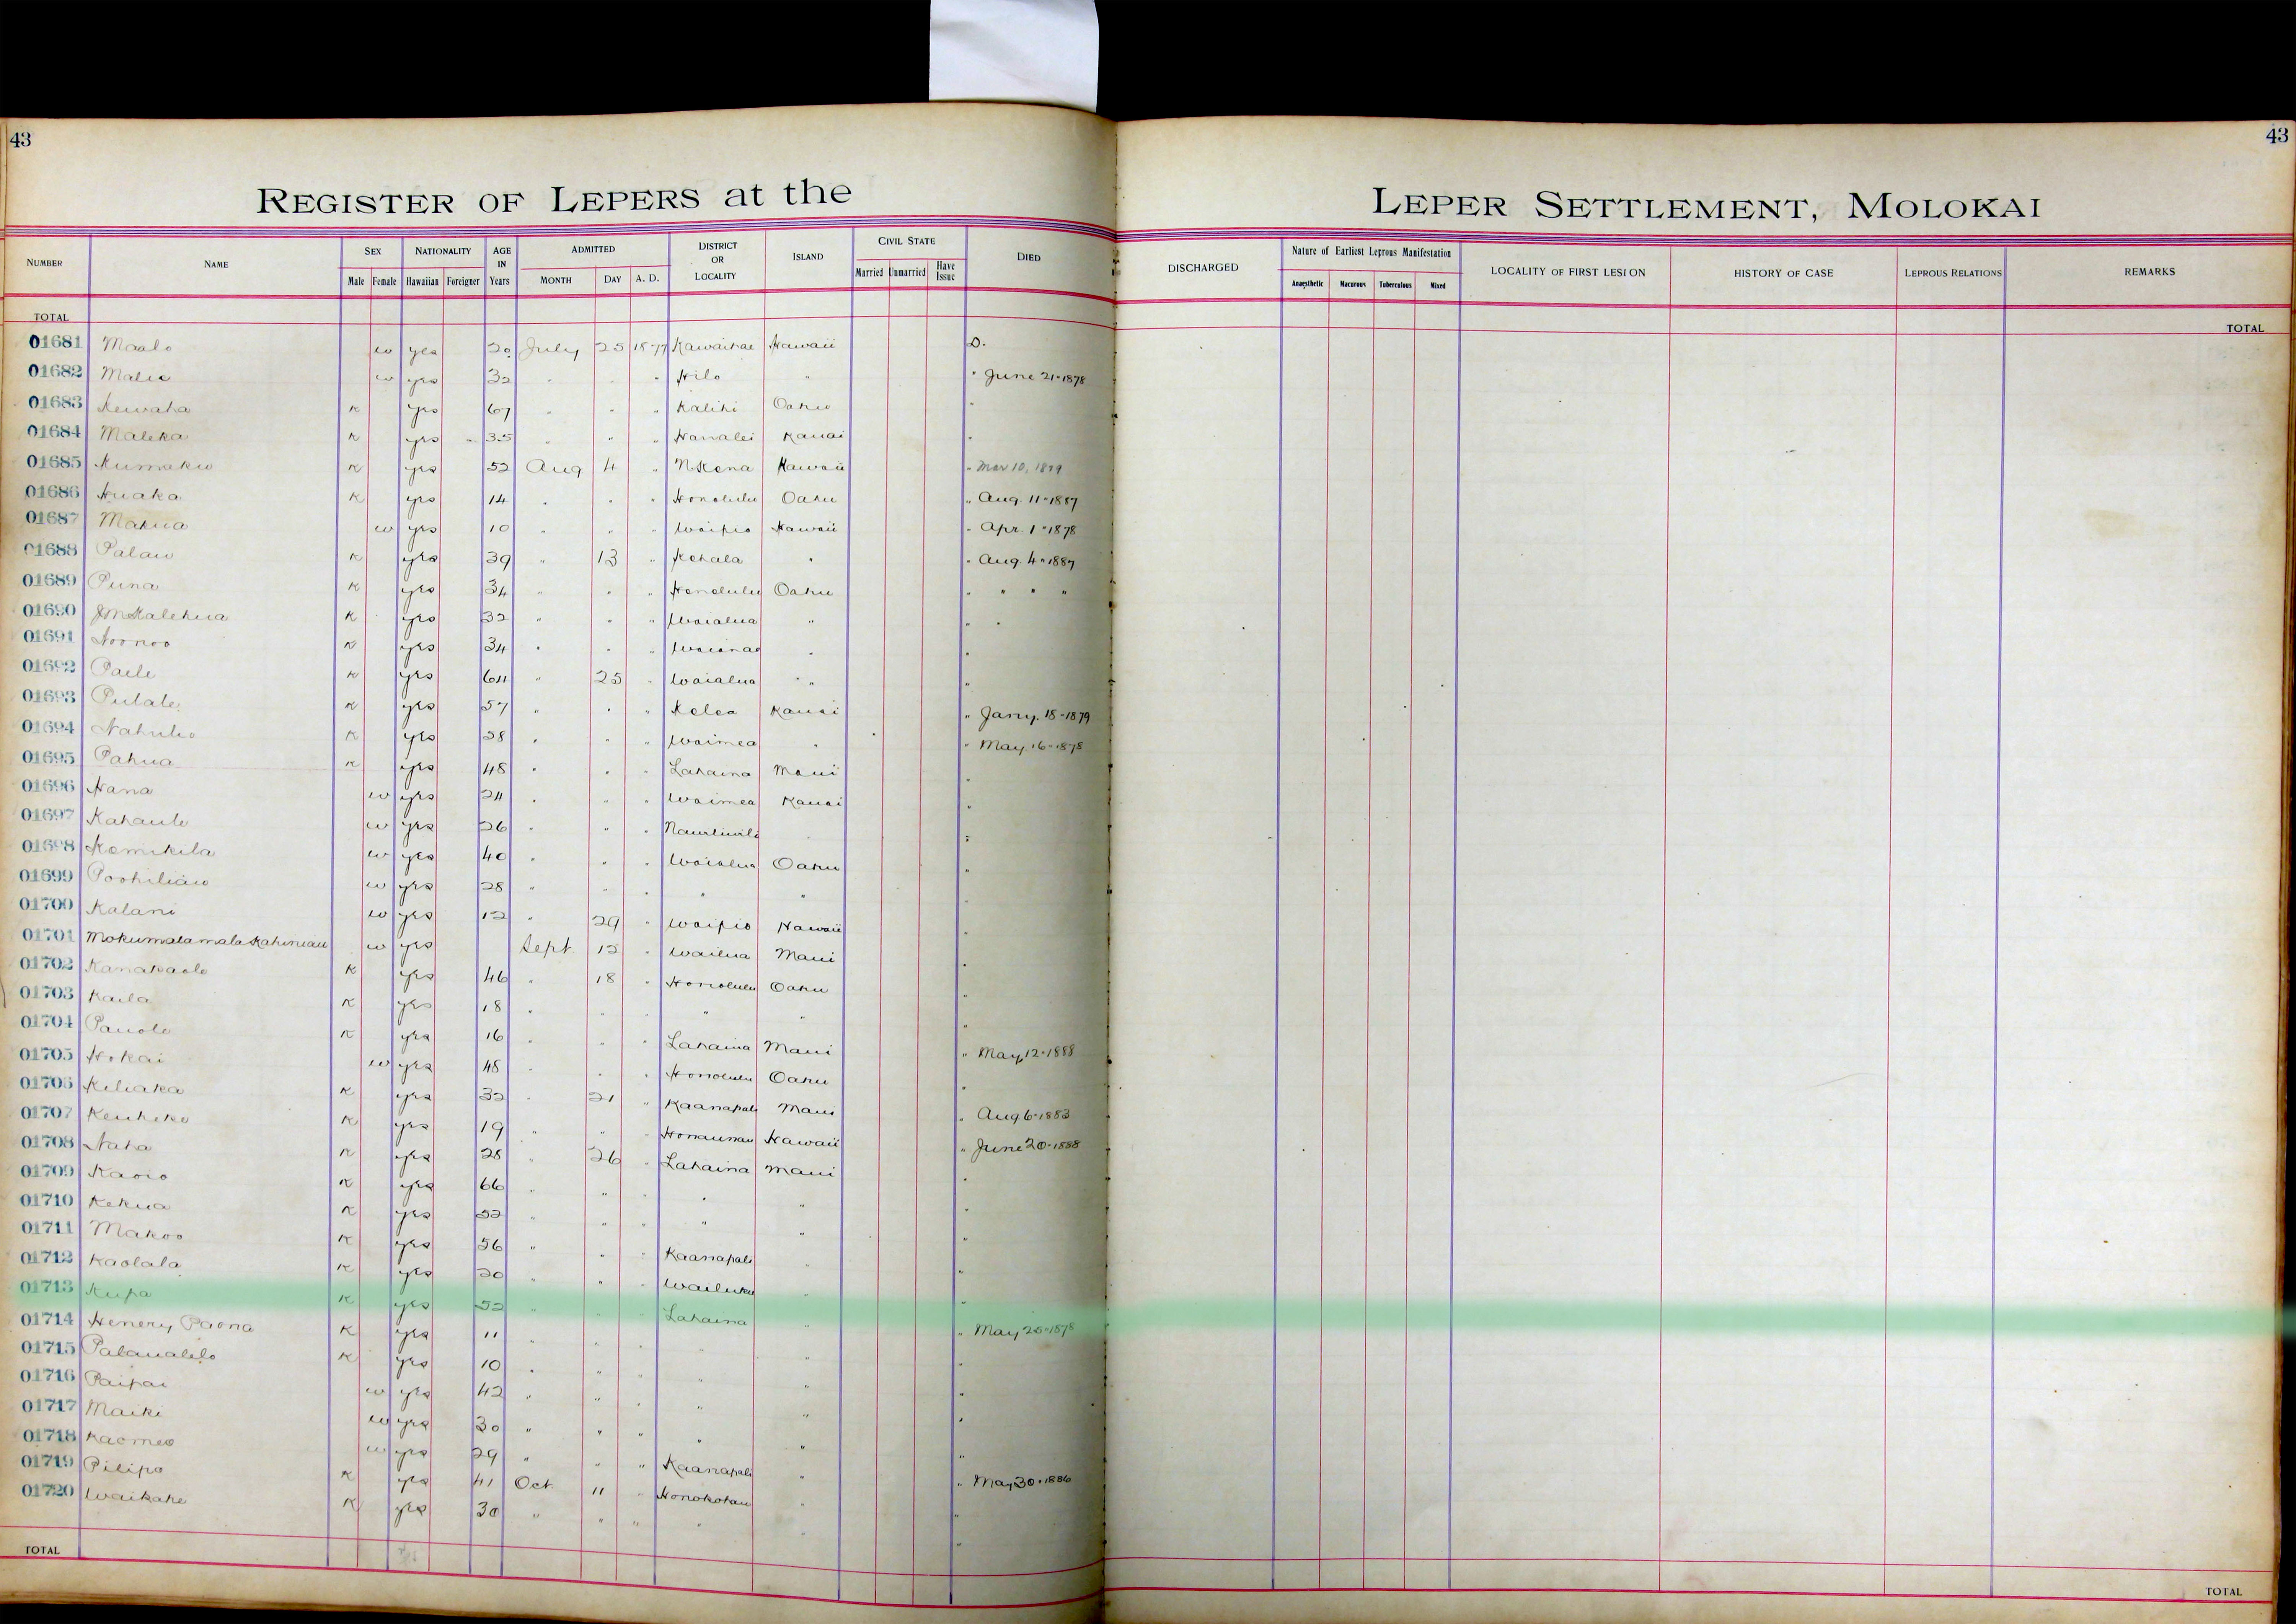 43
43
REGISTER OF LEPERS at the
LEPER SETTLEMENT, MOLOKAI
NUMBER NAME SEX NATIONALITY AGE IN Years ADMITTED DISTRICT OR LOCALITY ISLAND CIVIL STATE DIED
Male Female Hawaiian Foreigner MONTH DAY A. D. Married Unmarried Have Issue
DISCHARGED Nature of Earliest Leprous Manifestation LOCALITY OF FIRST LESION HISTORY OF CASE LEPROUS RELATIONS REMARKS
Anaesthetic Macurous Tuberculous Mixed
TOTAL
TOTAL
01681 Maalo w yes 20 July 25 1877 Kawaihae Hawaii D.
01682 w yes 32 " " " Hilo " " June 21-1878
01683 Kewaha K yes 67 " " " Kalihi Oahu "
01684 Maleka K yes 35 " " " Hanalei Kauai "
01685 Kumaku K yes 52 Aug 4 " N Kona Hawaii " Mar 10, 1879
01686 Huaka K yes 14 " " " Honolulu Oahu " Aug. 11-1887
01687 Makua w yes 10 " " " Waipio Hawaii " Apr. 1-1878
01688 Palau K yes 39 " 13 " Kohala " " Aug. 4-1887
01689 Puna K yes 34 " " " Honolulu Oahu " " " "
01690 K yes 32 " " " Waialua " " "
01691 Noonoo K yes 34 " " " Waianae " "
01692 Paele K yes 64 " 25 " Waialua " "
01693 Pulale K yes 57 " " " Kolea Kauai " Jany. 18-1879
01694 K yes 28 " " " Waimea " " May. 16-1878
01695 Pahua K yes 48 " " " Lahaina Maui "
01696 Hana w yes 24 " " " Waimea Kauai "
01697 Kahaule w yes 26 " " " Nawiliwili "
01698 Kamikila w yes 40 " " " Waialua Oahu "
01699 Poohiliau w yes 28 " " " " "
01700 Kalani w yes 12 " 29 " Waipio Hawaii "
01701 Mokumalamala Kahiniau w yes Sept 12 " Wailua Maui "
01702 Kanakaole K yes 46 " 18 " Honolulu Oahu "
01703 Kaila K yes 18 " " " " " "
01704 Pauole K yes 16 " " " Lahaina Maui " May, 12-1888
01705 Hokai w yes 48 " " " Honolulu Oahu "
01706 Keliaka K yes 32 " 21 " Kaanapali Maui " Aug 6-1883
01707 K yes 19 " " " Honaunau Hawaii " June 20-1888
01708 Naha K yes 28 " 26 " Lahaina Maui "
01709 K yes 66 " " " " " "
01710 Kekua K yes 52 " " " " " "
01711 Makoo K yes 56 " " " Kaanapali " "
01712 Kaolala K yes 20 " " " Wailuku " "
01713 Kupa K yes 52 " " " Lahaina " " May 25-1878
01714 Henery Paona K yes 11 " " " " " "
01715 K yes 10 " " " " " "
01716 Paipai w yes 42 " " " " " "
01717 Maiki w yes 30 " " " " " "
01718 w yes 29 " " " Kaanapali " " May 30-1886
01719 Pilipo K yes 41 Oct 11 " Honokohau " "
01720 Waikahe K yes 30 " " " " " "
TOTAL
TOTAL